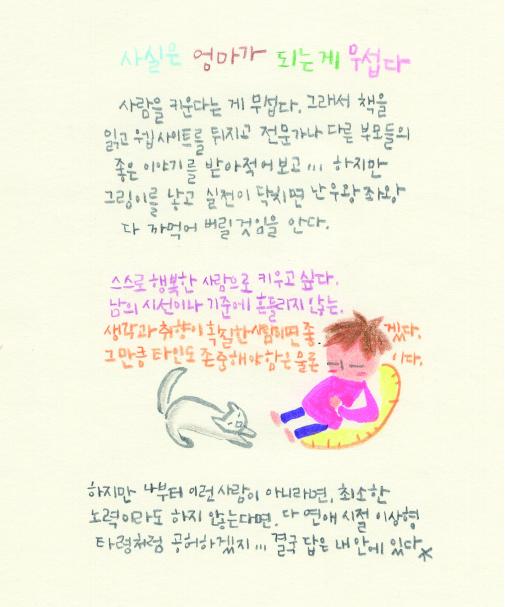 사실은 엄마가 되는게 무섭다
사람을 키운다는 게 무섭다. 그래서 책을
읽고 웹사이트를 뒤지고 전문가나 다른 부모들의
좋은 이야기를 받아적어보고... 하지만
그림이를 낳고 실전이 닥치면 난 우왕좌왕
다 까먹어 버릴 것임을 안다.
스스로 행복한 사람으로 키우고 싶다.
남의 시선이나 기준에 흔들리지 않는.
생각과 취향이 확실한 사람이면 좋겠다.
그만큼 타인도 존중해야 함은 물론이다.
하지만 나부터 이런 사람이 아니라면, 최소한
노력이라도 하지 않는다면, 다 연애 시절 이상형
타령처럼 공허하겠지... 결국 답은 내 안에 있다